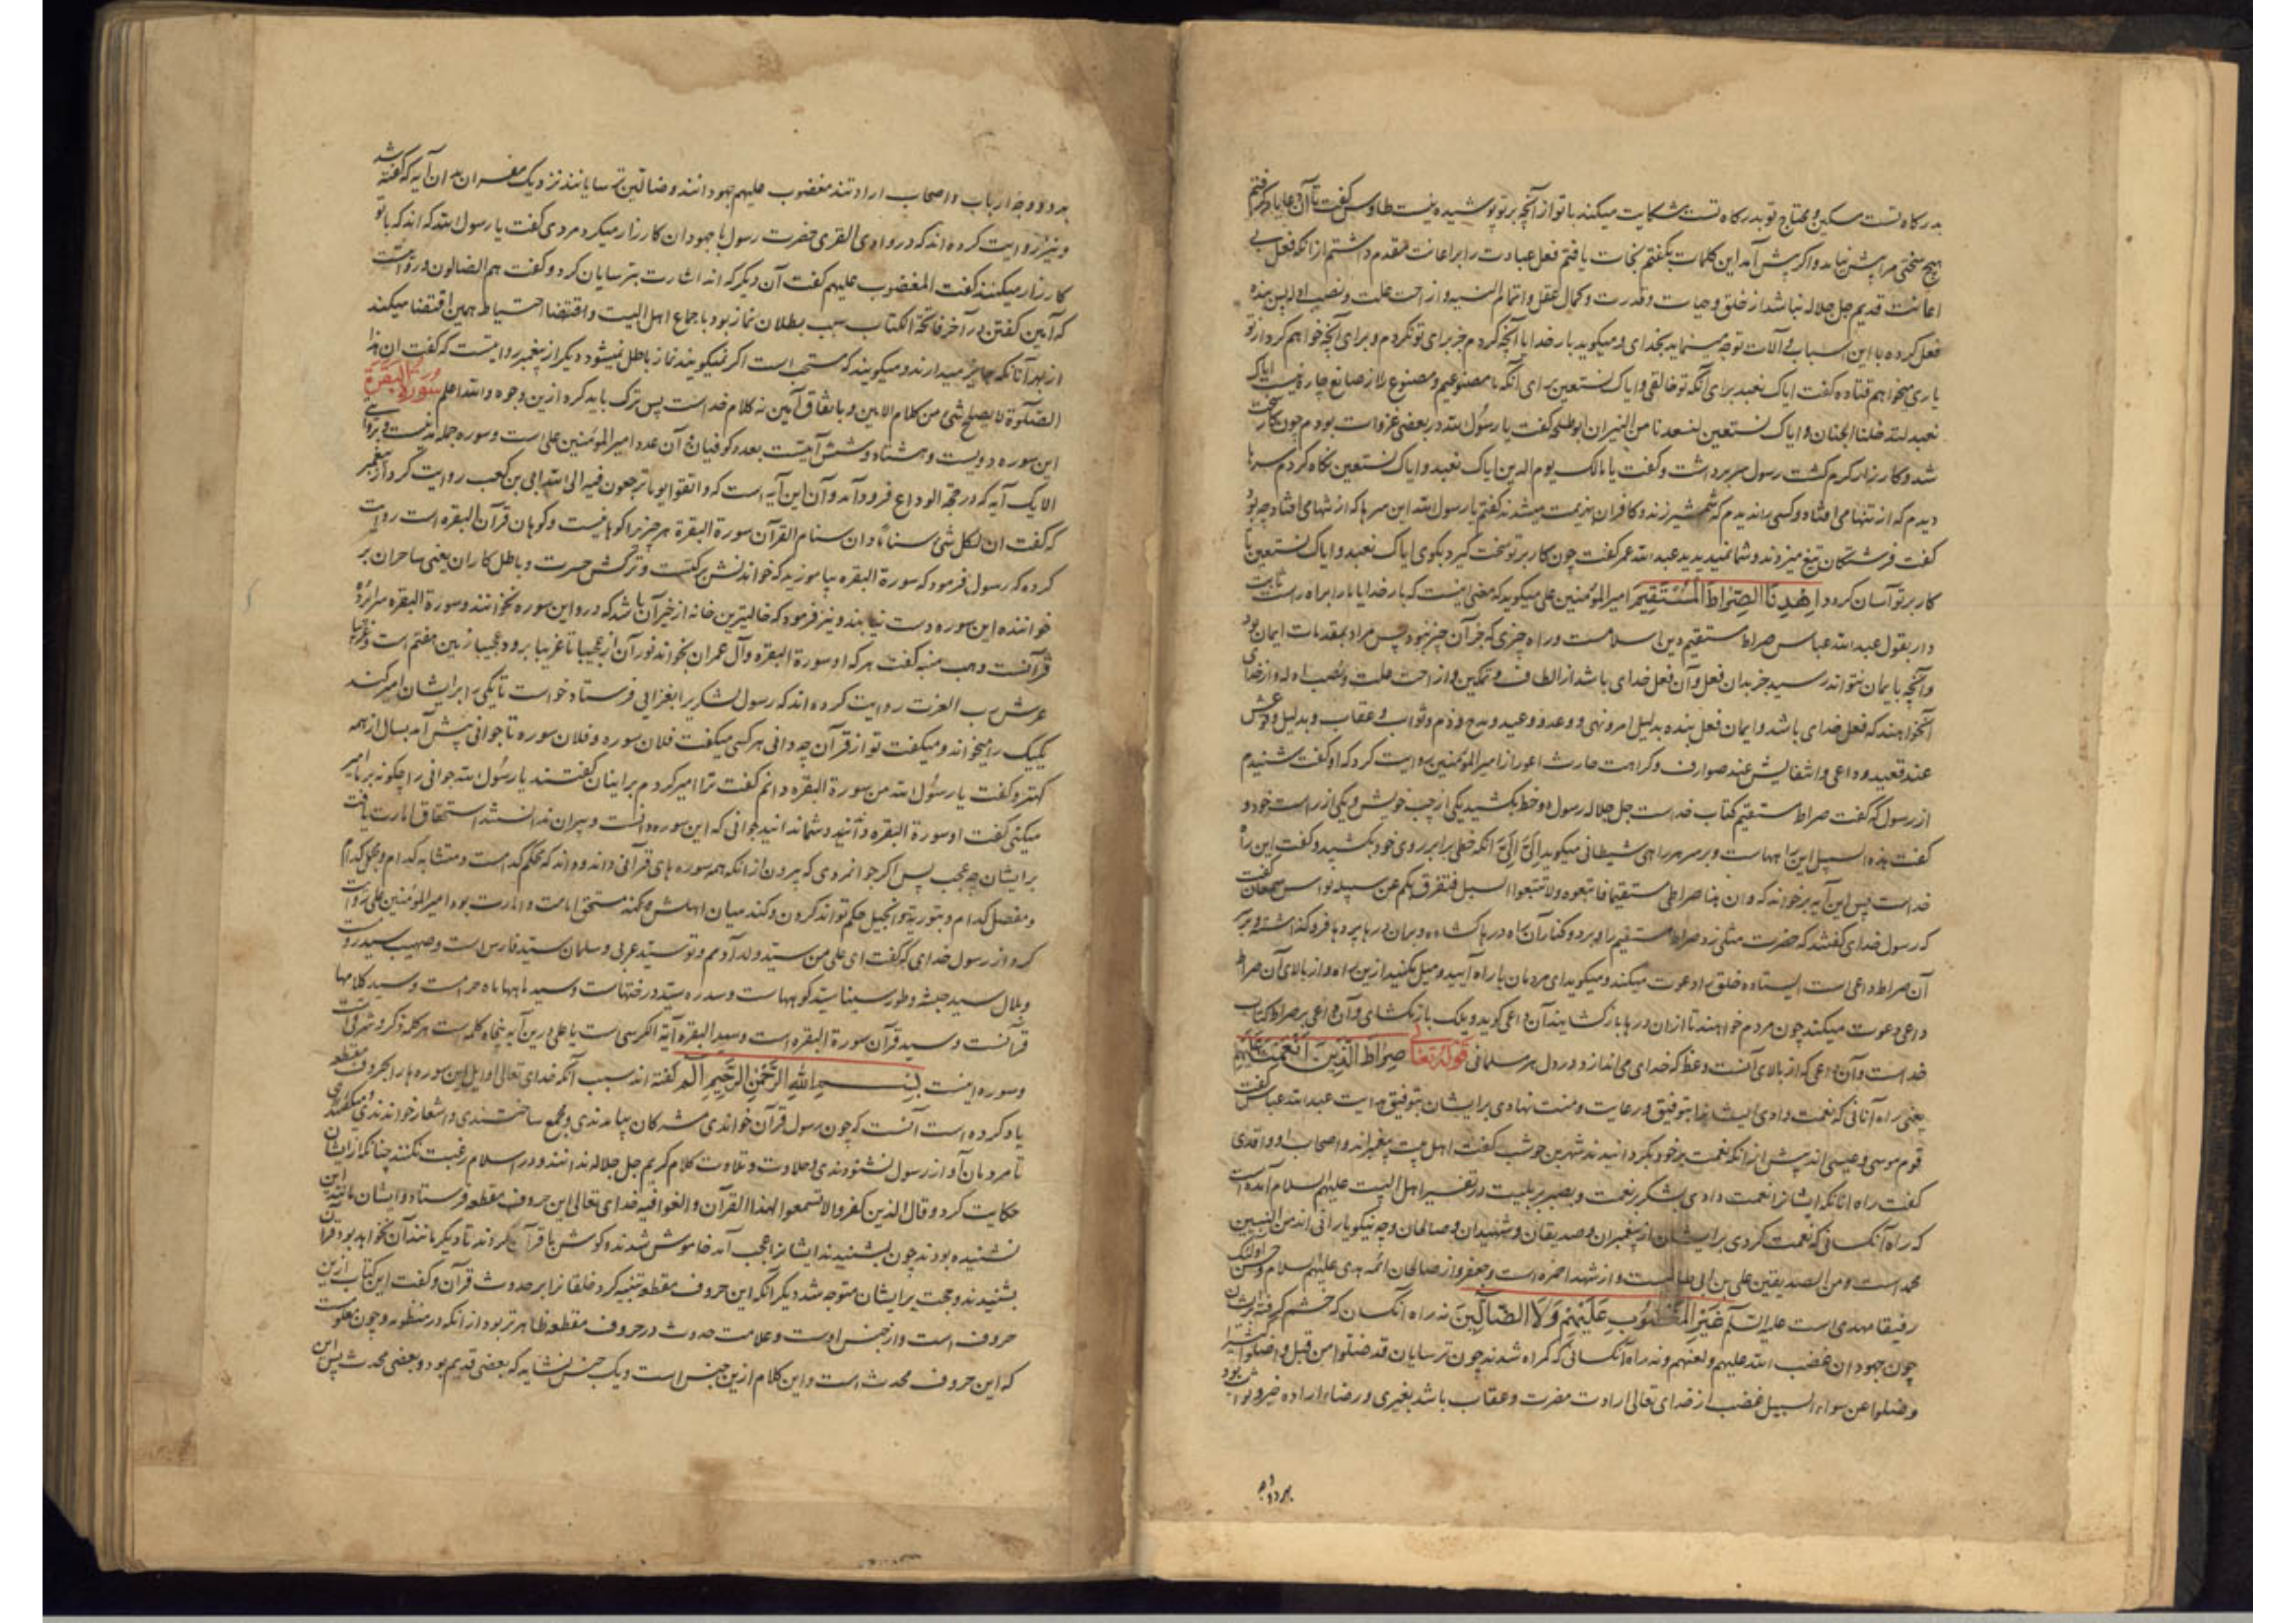 بدرگاه تست مسکین و محتاج تو بدرگاه تست شکایت میکند با تو از آنچه بر تو پوشیده نیست طاوس گفت تا آن دعا یاد گرفتم
هیچ سختی مرا پیش نیامد و اگر پیش آمد این کلمات بگفتم نجات یافتم فعل عبادت را بر اعانت مقدم داشتم از آنکه فعل بی
اعانت قدیم جل جلاله نباشد از خلق و حیات و قدرت و کمال عقل و ازاحت علت و نصب ادله پس بنده
فعل کرده با این اسباب و آلات توجه مینماید بخدای و میگوید بار خدایا آنچه کردم جز برای تو نکردم و برای آنچه خواهم کرد از تو
یاری میخواهم قتاده گفت ایاک نعبد برای آنکه تو خالقی و ایاک نستعین برای آنکه ما مصنوعیم و مصنوع را از صانع چاره نیست ایاک
نعبد لتدخلنا الجنان و ایاک نستعین لتبعدنا من النیران ابو طلحه گفت یا رسول الله در بعضی غزوات بودم چون کار سخت
شد و کارزار گرم گشت رسول سر برداشت و گفت یا مالک یوم الدین ایاک نعبد و ایاک نستعین نگاه کردم سرها
دیدم که از تنها می افتاد و کسی را ندیدم که شمشیر زند و کافران هزیمت میشدند گفتم یا رسول الله این سرها که از تنها می افتاد چه بود
گفت فرشتگان تیغ میزدند و شما نمیدیدید عبد الله عمر گفت چون کار بر تو سخت گیرد بگوی ایاک نعبد و ایاک نستعین تا
کار بر تو آسان گردد اِهْدِنَا الصِّرَاطَ الْمُسْتَقِیمَ امیر المؤمنین علی میگوید که معنی اینست که بار خدایا ما را بر راه راست ثابت
دار بقول عبد الله عباس صراط مستقیم دین اسلامست و راه چیزی که جز آن چیز نبود پس مراد بمقدمات ایمان بود
و آنچه بایمان نتواند رسید جز بدان فعل و آن فعل خدای باشد از الطاف و تمکین و ازاحت علت و نصب ادله و از خدای
آنخواهند که فعل خدای باشد و ایمان فعل بنده بدلیل امر و نهی و وعد و وعید و مدح و ذم و ثواب و عقاب و بدلیل وقوعش
عند قصد و داعی و انتفایش عند صوارف و کراهت حارث اعور از امیر المؤمنین روایت کرد که او گفت شنیدم
از رسول که گفت صراط مستقیم کتاب خداست جل جلاله رسول دو خط بکشید یکی از چپ خویش و یکی از راست خود و
گفت هذه السبل این راههاست و بر سر هر راهی شیطانی میگوید اِلَیَّ اِلَیَّ آنگه خطی برابر روی خود بکشید و گفت این راه
خداست پس این آیه بر خواند که و ان هذا صراطی مستقیما فاتبعوه ولا تتبعوا السبل فتفرق بکم عن سبیله نواس سمعان گفت
که رسول خدای گفتند که حضرت مثلی زد صراط مستقیم را و بر دو کنار آن راه درها گشاده و بر آن درها پردها فرو گذاشته و بر سر
آن صراط داعی است ایستاده خلق را دعوت میکند و میگوید ای مردمان با راه آیید و میل مکنید ازین راه و از بالای آن صراط
داعی دعوت میکند چون مردم خواهند تا از آن درها باز گشایند آن داعی گوید ویلک باز مگشای و آن داعی بر صراط کتاب
خداست و آن داعی که از بالای آنست وعظ که خدای می اندازد در دل هر مسلمانی قوله تعالی صِرَاطَ الَّذِینَ اَنْعَمْتَ عَلَیْهِمْ
یعنی راه آنانی که نعمت دادی ایشانرا بتوفیق و رعایت و منت نهادی بر ایشان بتوفیق هدایت عبد الله عباس گفت
قوم موسی و عیسی اند پیش از آنکه نعمت بر خود بگردانیدند شهر بن حوشب گفت اهل بیت پیغمبراند و اصحاب او واقدی
گفت راه آنانکه ایشانرا نعمت دادی بشکر بر نعمت و بصبر بر بلیت در تفسیر اهل البیت علیهم السلام آمده است
که راه آنکسانی که نعمت کردی بر ایشان از پیغمبران و صدیقان و شهیدان و صالحان و چه نیکو یارانی اند من النبیین
محمد است و من الصدیقین علی بن ابی طالبست و از شهدا حمزه است و جعفر و از صالحان ائمه هدی علیهم السلام و حسن اولئک
رفیقا مهدی است علیه السلام غَیْرِ الْمَغْضُوبِ عَلَیْهِمْ وَلَا الضَّالِّینَ نه راه آنکسان که خشم گرفتی بر ایشان
چون جهودان غضب الله علیهم و لعنهم و نه راه آنکسانی که گمراه شدند چون ترسایان قد ضلوا من قبل و اضلوا کثیرا
و ضلوا عن سواء السبیل غضب از خدای تعالی ارادت مضرت و عقاب باشد بغیری و رضاء اراده خیر و ثواب بود
بهر دو وجه
بهر دو وجه ارباب و اصحاب ارادتند مغضوب علیهم جهودانند و ضالین ترسایانند نزدیک مفسران بدان آیه که گفته شد
و نیز روایت کرده اند که در وادی القری حضرت رسول با جهودان کارزار میکرد مردی گفت یا رسول الله که اند که با تو
کارزار میکنند گفت المغضوب علیهم گفت آن دیگر که اند اشارت بترسایان کرد و گفت هم الضالون و روا نیست
که آمین گفتن در آخر فاتحة الکتاب سبب بطلان نماز بود باجماع اهل البیت و اقتضا احتیاط همین اقتضا میکند
از بهر آنانکه جایز میدارند و میگویند که مستحب است اگر نمیگویند نماز باطل نمیشود دیگر از پیغمبر روایتست که گفت ان هذا
الصلوة لا یصلح شئ من کلام الادمین و باتفاق آمین نه کلام خداست پس ترک باید کرد ازین وجوه والله اعلم سورة البقرة
این سوره دویست و هشتاد و شش آیتست بعدد کوفیان و آن عدد امیر المؤمنین علی است و سوره جمله مدنیست و بروایتی
الا یک آیه که در حجة الوداع فرود آمد و آن این آیه است که و اتقوا یوما ترجعون فیه الی الله ابی بن کعب روایت کرد از پیغمبر
که گفت ان لکل شئ سناما و ان سنام القرآن سورة البقرة هر چیز را کوهانیست و کوهان قرآن البقره است روایت
کرده که رسول فرمود که سورة البقره بیاموزید که خواندنش برکتست و ترکش حسرت و باطل کاران یعنی ساحران بر
خواننده این سوره دست نیابند و نیز فرمود که خالیترین خانه از خیر آن باشد که درو این سوره نخوانند و سورة البقره سرا پرده
قرآنست وهب منبه گفت هر که او سورة البقره و آل عمران بخواند نور آن از عجیبا تا غریبا برود عجیبا زمین هفتم است و غریبا
عرش رب العزت روایت کرده اند که رسول لشکری را بغزایی فرستاد خواست تا یکی را بر ایشان امیر کند
یکیک را میخواند و میگفت تو از قرآن چه دانی هر کسی میگفت فلان سوره و فلان سوره تا جوانی پیش آمد بسال از همه
کهتر و گفت یا رسول الله من سورة البقره دانم گفت ترا امیر کردم بر اینان گفتند یا رسول الله جوانی را چگونه بر ما امیر
میکنی گفت او سورة البقره داند و شما ندانید جوانی که این سوره دانست و پیران ندانستند استحقاق امارت یافت
بر ایشان چه عجب پس اگر جوانمردی که بیرون از آنکه همه سوره های قرآنی داند و داند که محکم کدامست و متشابه کدام و مجمل کدام
و مفصل کدام و بتوریة و انجیل حکم تواند کردن و کند میان اهلش مستحق امامت و امارت بود امیر المؤمنین علی روایت
کرد از رسول خدای که گفت ای علی من سید ولد آدمم و تو سید عربی و سلمان سید فارس است و صهیب سید رومست
و بلال سید حبشه و طور سینا سید کوههاست و سدره سید درختهاست و سید ماهها ماه حرامست و سید کلامها
قرآنست و سید قرآن سورة البقره است و سید البقره آیة الکرسی است یا علی درین آیه پنجاه کلمه است هر کلمه
و سوره اینست بِسْمِ اللهِ الرَّحْمٰنِ الرَّحِیمِ الٓمٓ گفته اند سبب آنکه خدای تعالی اوایل این سوره ها را بحروف مقطعه
یاد کرده است آنست که چون رسول قرآن خواندی مشرکان بیامدندی و جمع ساختندی و اشعار خواندندی
تا مردمان آواز رسول نشنودندی و حلاوت و تلاوت کلام کریم جل جلاله ندانند و در اسلام رغبت نکنند چنانکه از ایشان
حکایت کرد و قال الذین کفروا لا تسمعوا لهذا القرآن و الغوا فیه خدای تعالی این حروف مقطعه فرستاد و ایشان مانند این
نشنیده بودند چون بشنیدند ایشانرا عجب آمد خاموش شدند گوش با قرآن کردند تا دیگر مانند آن خواهد بود قرآن
بشنیدند و حجت بر ایشان متوجه شد دیگر آنکه این حروف مقطعه تنبیه کرد خلقانرا بر حدوث قرآن و گفت این کتاب ازین
حروف است و از جنس اوست و علامت حدوث در حروف مقطعه ظاهرتر بود از آنکه در منظومه و چون معلومست
که این حروف محدث است و این کلام ازین جنس است و یک جنس نشاید که بعضی قدیم بود و بعضی محدث پس این